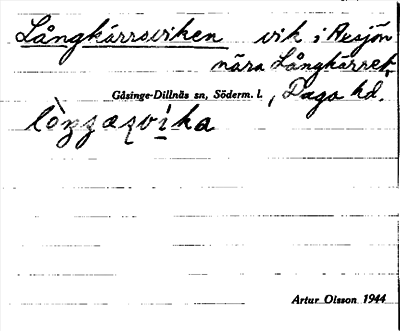 Långkärrsviken vik i Avsjön
nära Långkärret,
Gåsinge-Dillnäs sn, Söderm. l., Daga hd.
Artur Olsson 1944